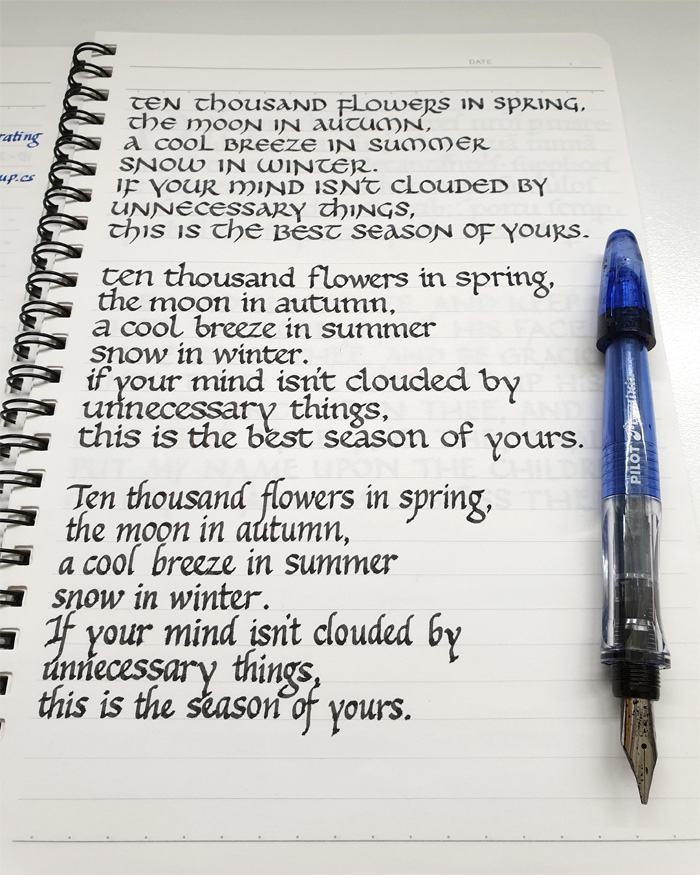 DATE
rating
up.cs
TEN THOUSAND FLOWERS IN SPRING,
THE MOON IN AUTUMN,
A COOL BREEZE IN SUMMER
SNOW IN WINTER.
IF YOUR MIND ISN'T CLOUDED BY
UNNECESSARY THINGS,
THIS IS THE BEST SEASON OF YOURS.
ten thousand flowers in spring,
the moon in autumn,
a cool breeze in summer
snow in winter.
if your mind isn't clouded by
unnecessary things,
this is the best season of yours.
Ten thousand flowers in spring,
the moon in autumn,
a cool breeze in summer
snow in winter.
If your mind isn't clouded by
unnecessary things,
this is the season of yours.
PILOT